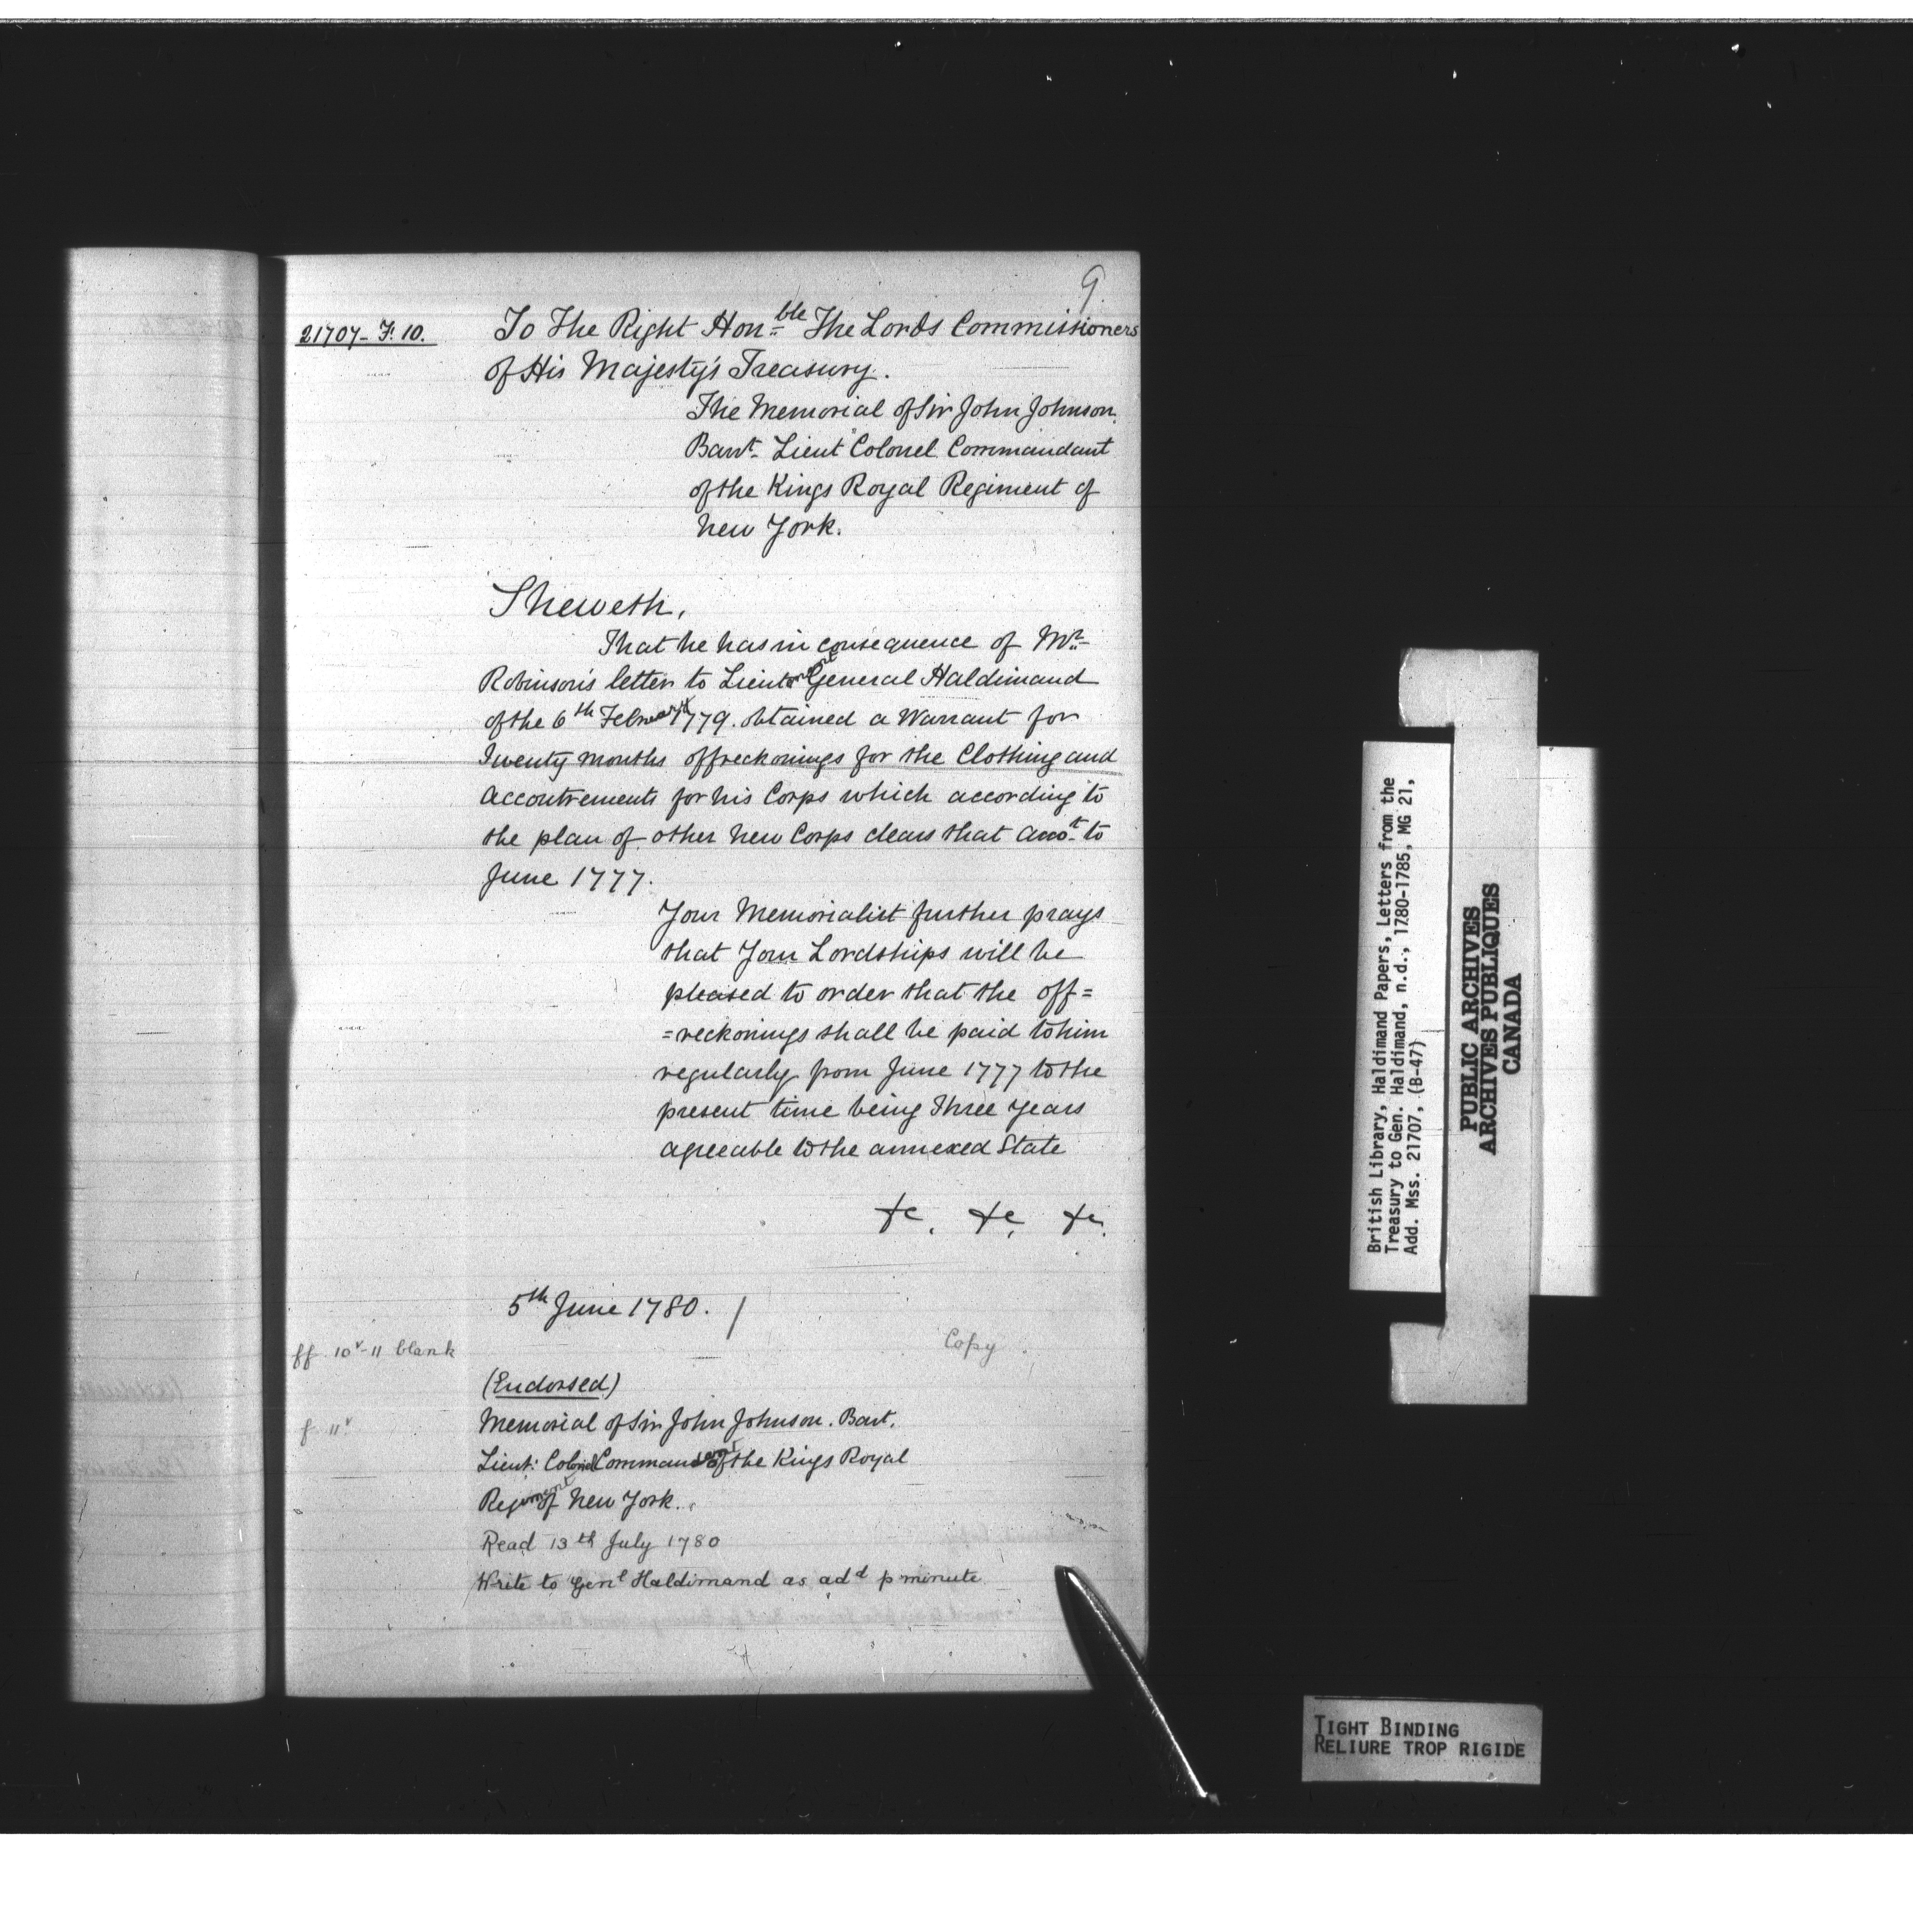 9.
21707- F. 10.
To The Right Hon.ble The Lords Commissioners
of His Majesty's Treasury.
The Memorial of Sir John Johnson.
Bart. Lieut Colonel Commandant
of the Kings Royal Regiment of
New York.
Sheweth,
That he has in consequence of Mr.
Robinson's letter to Lieutenant General Haldimand
of the 6th February 1779. obtained a Warrant for
Twenty months offreckonings for the Clothing and
Accoutrements for his Corps which according to
the plan of other New Corps clears that Acco.t to
June 1777.
Your Memorialist further prays
that Your Lordships will be
pleased to order that the off=
=reckonings shall be paid to him
regularly from June 1777 to the
present time being Three years
agreeable to the annexed State
&c. &c. &c.
5th June 1780. /
ff. 10v-11 blank
Copy
(Endorsed)
f. 11v
Memorial of Sir John Johnson. Bart.
Lieut: Colonel Commandant of the Kings Royal
Regiment of New York.
Read 13th July 1780
Write to Genl Haldimand as add p minute
British Library, Haldimand Papers, Letters from the
Treasury to Gen. Haldimand, n.d., 1780-1785, MG 21,
Add. Mss. 21707, (B-47)
PUBLIC ARCHIVES
ARCHIVES PUBLIQUES
CANADA
TIGHT BINDING
RELIURE TROP RIGIDE